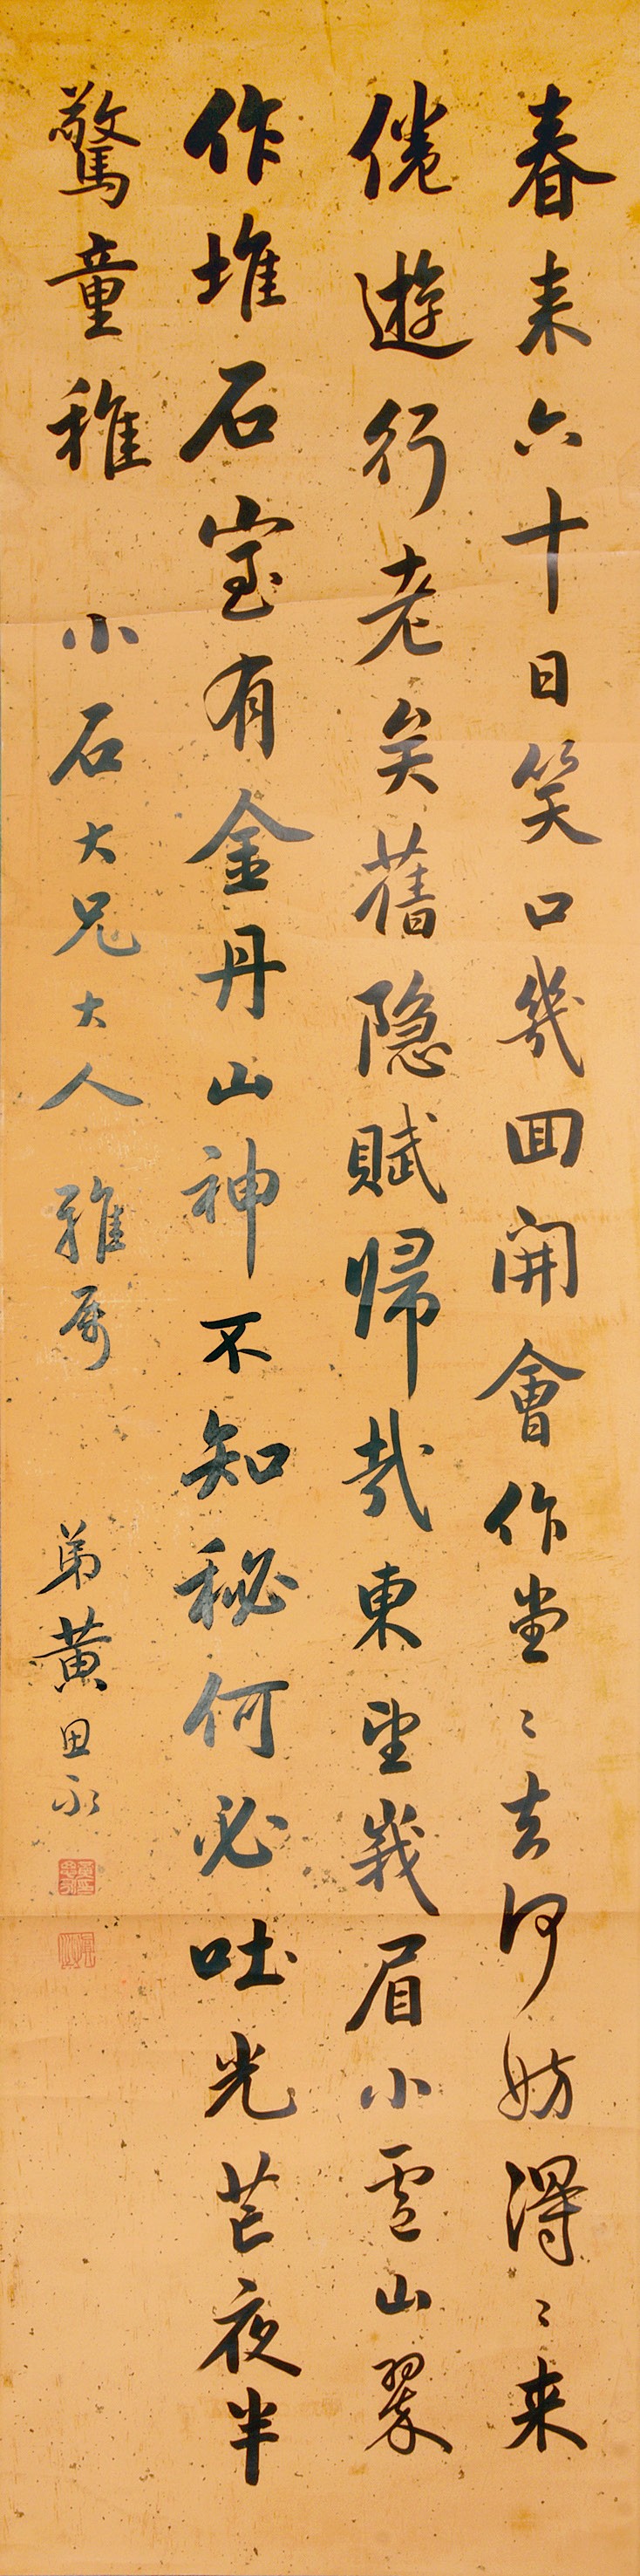 春来六十日笑口幾回開會作堂〻去何妨得〻来
倦遊行老矣舊隐賦歸哉東望峩眉小雪山翠
作堆石室有金丹山神不知秘何必吐光芒夜半
驚童稚 小石大兄大人 雅属 弟黄思永